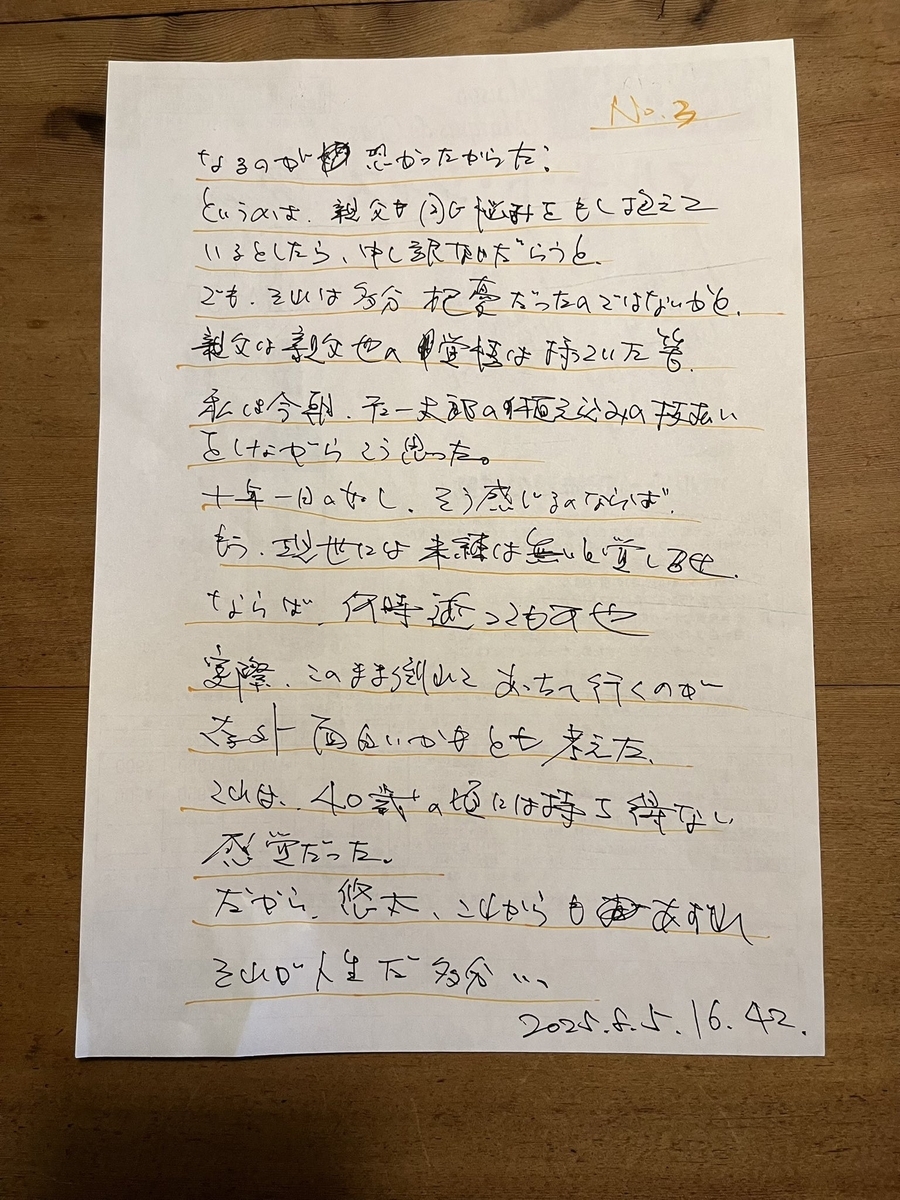 No.3
なるのが 恐かったからだ。
というのは、親父も同じ悩みをもし抱えて
いるとしたら、申し訳ないだらうと、
でも、それは多分 杞憂だったのではないかと、
親父は親父也の覚悟は持っていた筈、
私は今朝、 太郎の植え込みの枝払い
をしながらそう思った。
十年一日の如し、そう感じるのならば、
もう、現世には未練は無いと覚し
ならば、何時逝っても
実際、このまま倒れて あっちへ行くのが
存外 面白いかもとも 考えた、
それは、40歳 の頃には持ち得ない
感覚だった。
だから、悠太、これからも あすれ
それが人生だ 多分、、
2025.8.5.16.42.